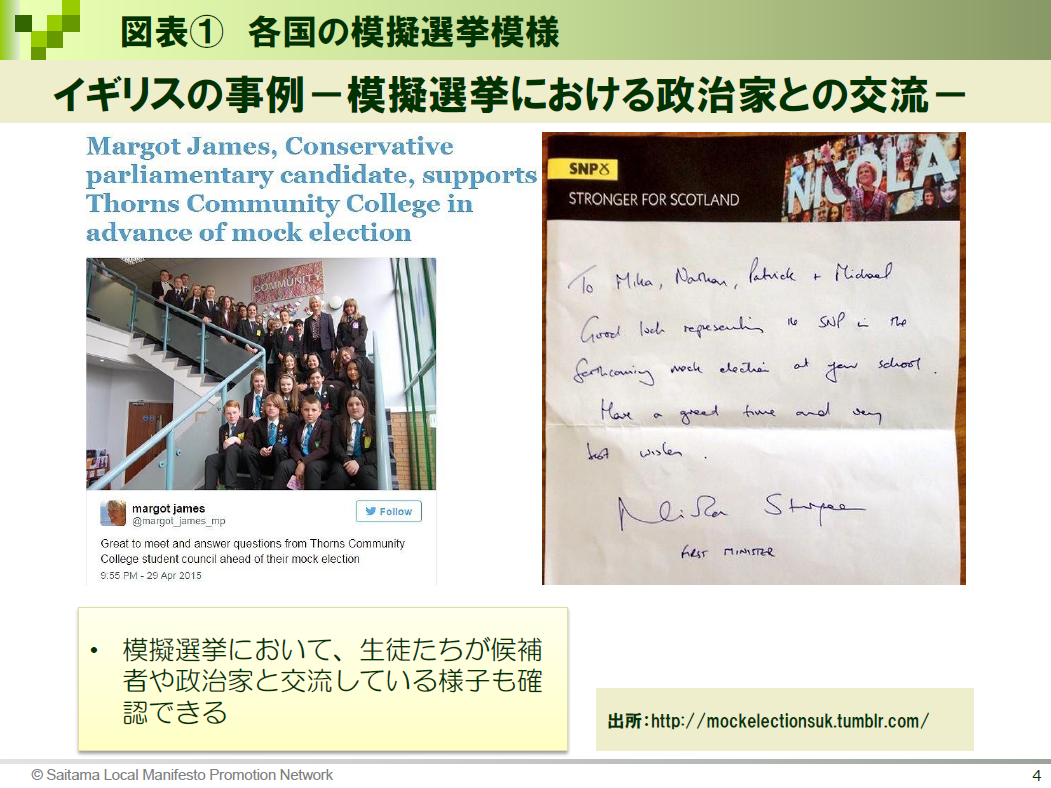 図表① 各国の模擬選挙模様
イギリスの事例－模擬選挙における政治家との交流－
Margot James, Conservative
parliamentary candidate, supports
Thorns Community College in
advance of mock election
COMMUNITY
margot james
@margot_james_mp
Follow
Great to meet and answer questions from Thorns Community
College student council ahead of their mock election
9:55 PM - 29 Apr 2015
SNP
STRONGER FOR SCOTLAND
NICOLA
To Mika, Nathan, Patrick + Michael
Good luck representing the SNP in the
forthcoming mock election at your school.
Have a great time and very
best wishes.
Nicola Sturgeon
FIRST MINISTER
• 模擬選挙において、生徒たちが候補
者や政治家と交流している様子も確
認できる
出所：http://mockelectionsuk.tumblr.com/
© Saitama Local Manifesto Promotion Network
4